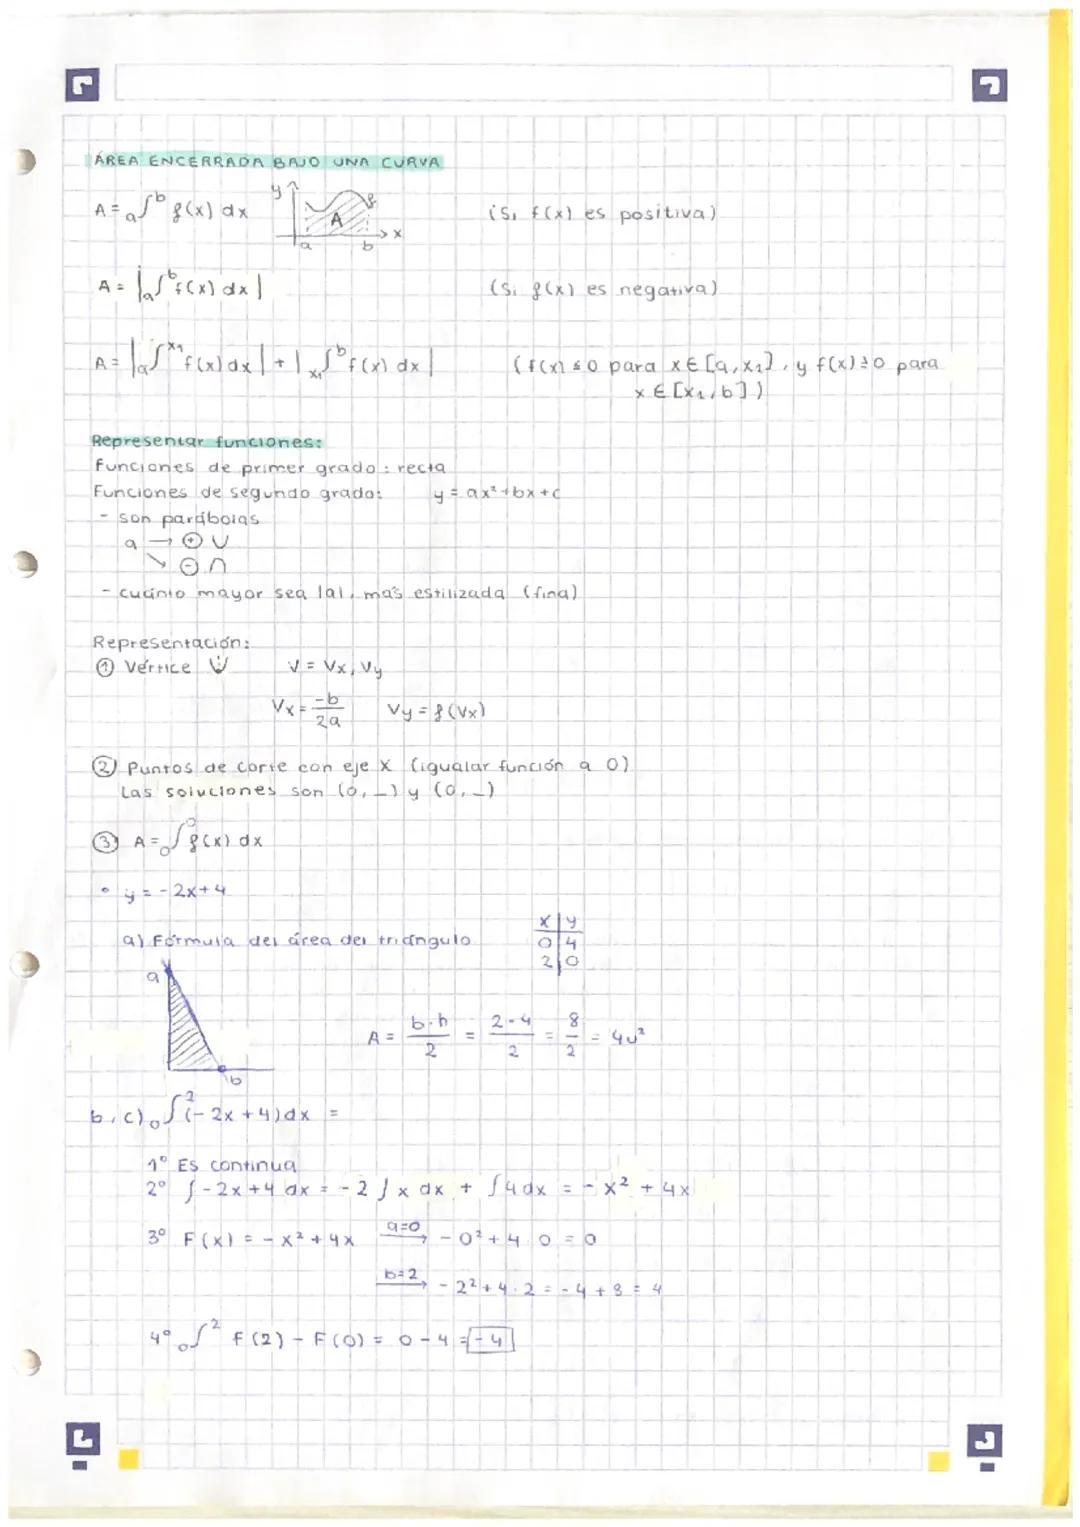 ÁREA ENCERRADA BAJO UNA CURVA
A = a∫b f(x) dx y f A a b x (Si f(x) es positiva)
A = |a∫b f(x) dx| (Si f(x) es negativa)
A = |a∫x₁ f(x) dx| + |x₁∫b f(x) dx| (f(x) ≤ 0 para x ∈ [a, x₁], y f(x) ≥ 0 para
x ∈ [x₁, b])
Representar funciones:
Funciones de primer grado: recta
Funciones de segundo grado: y = ax² + bx + c
- son parábolas
a → ⊕ ∪
↘ ⊖ ∩
- cuánto mayor sea |a|, más estilizada (fina)
Representación:
① Vértice V = Vx, Vy
Vx = -b/2a Vy = f(Vx)
② Puntos de corte con eje x (igualar función a 0)
Las soluciones son (0, _) y (0, _)
③ A = 0∫0 f(x) dx
• y = -2x + 4
a) Fórmula del área del triángulo
x | y
0 | 4
2 | 0
a
b
A = b·h/2 = 2·4/2 = 8/2 = 4u²
b, c) 0∫2 (-2x + 4) dx =
1º Es continua
2º ∫-2x + 4 dx = -2 ∫x dx + ∫4 dx = -x² + 4x
3º F(x) = -x² + 4x a=0 → -0² + 4·0 = 0
b=2 → -2² + 4·2 = -4 + 8 = 4
4º 0∫2 F(2) - F(0) = 0 - 4 = -4